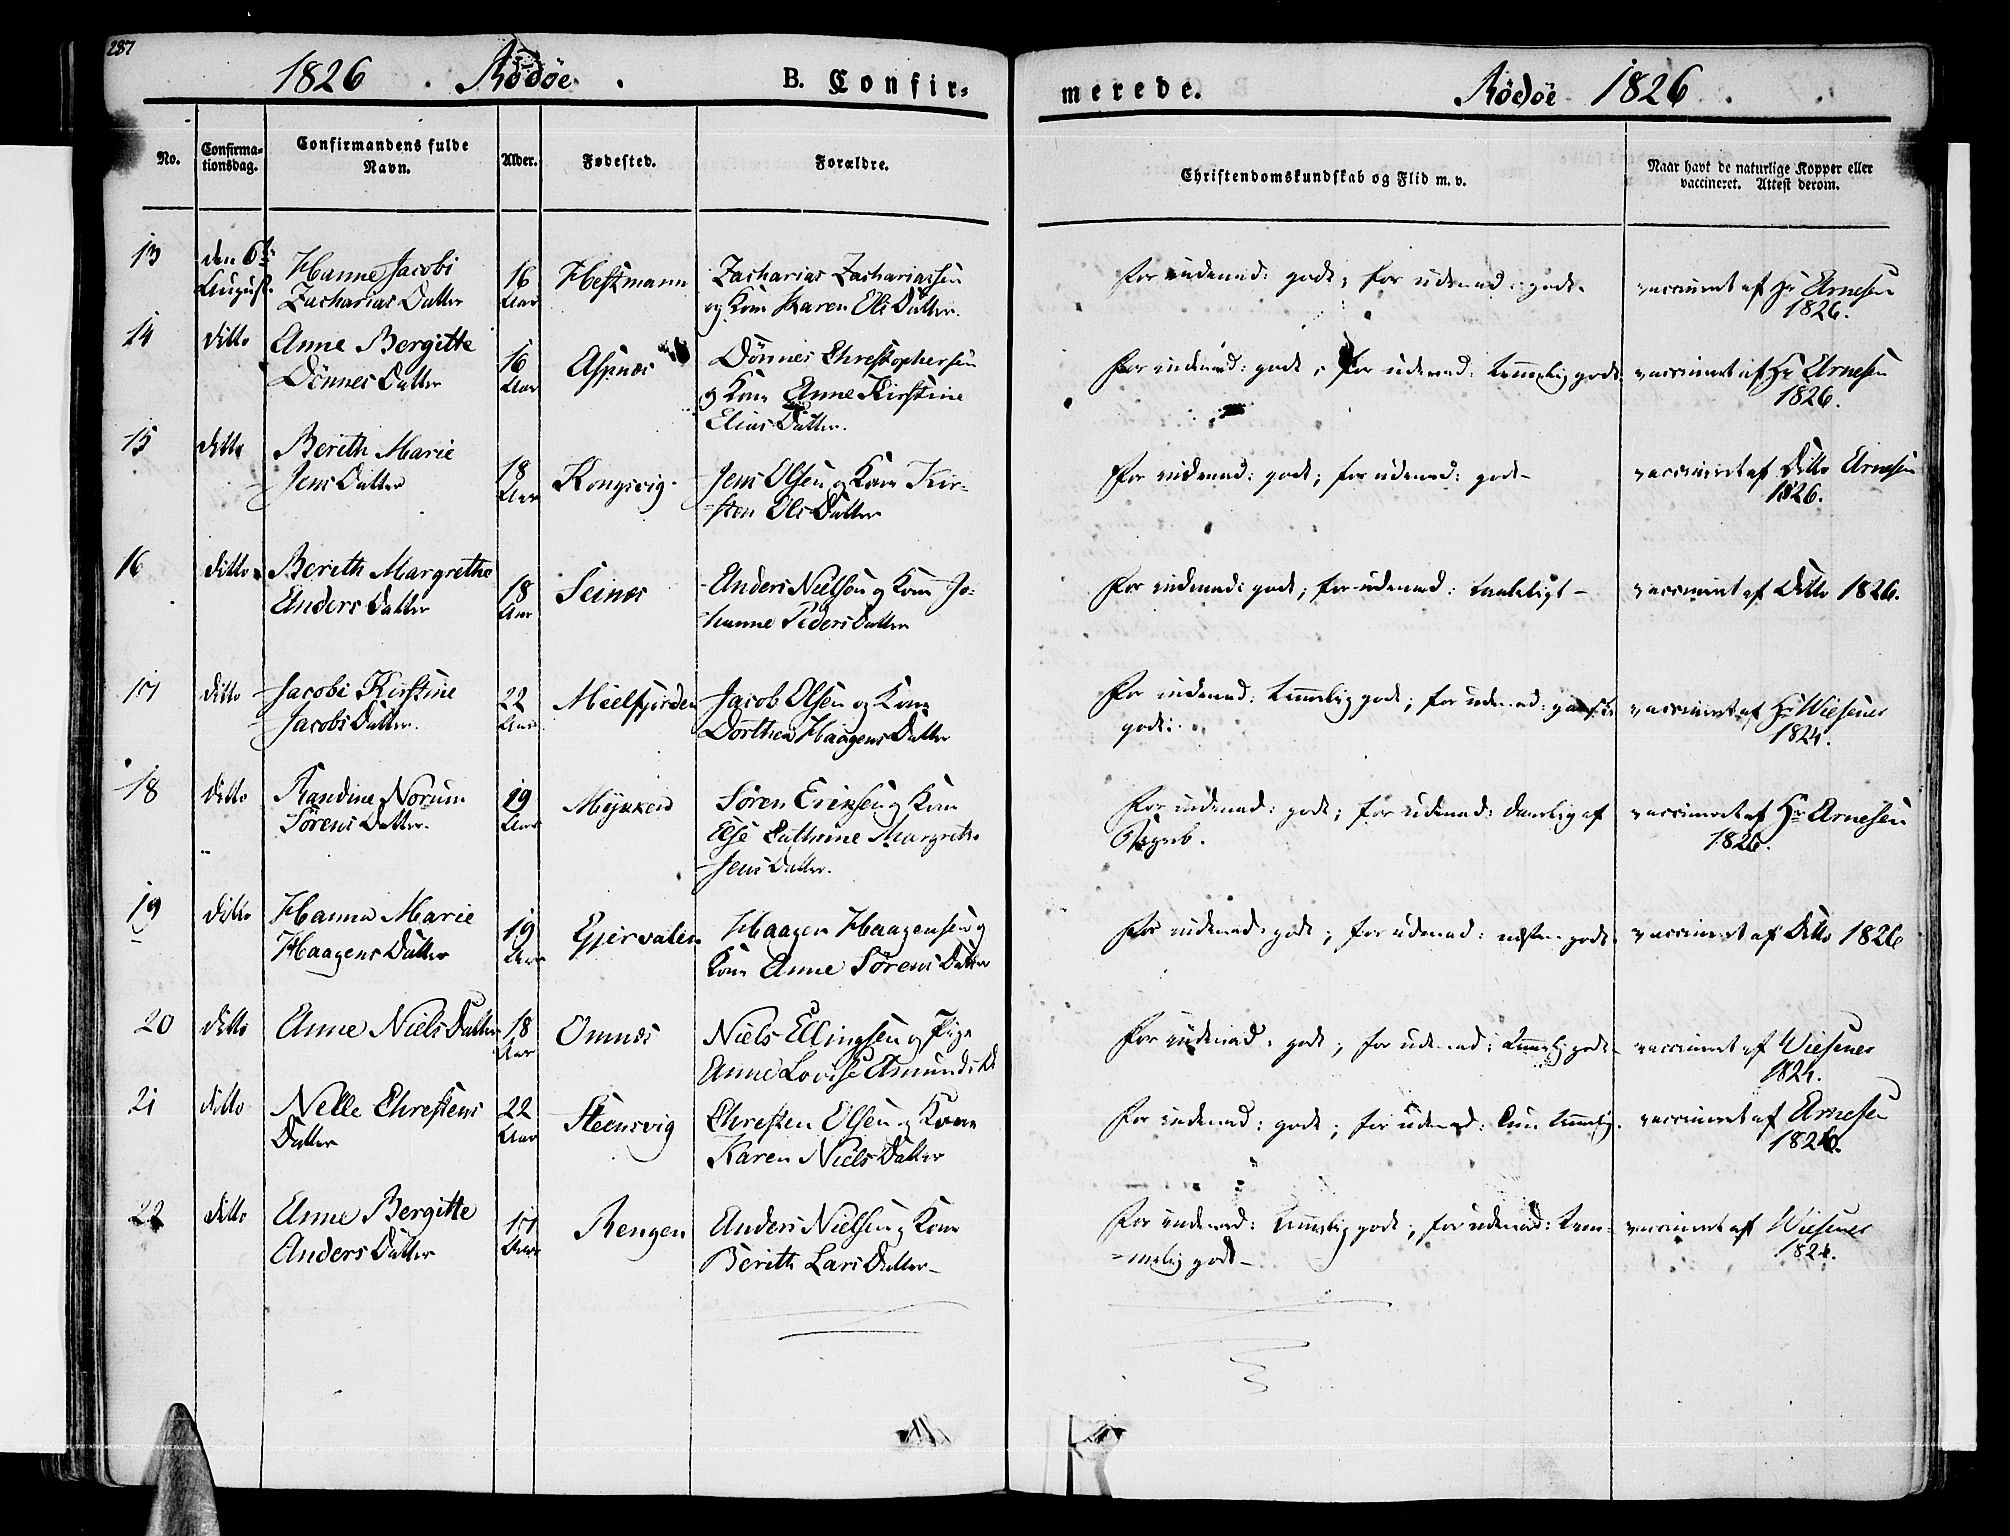 287
1826 . Rødøe .
B. Confir-
merede.
Rødøe 1826 .
No.
Confirma-
tionsdag.
Confirmandens fulde
Navn.
Alder.
Fødested.
Forældre.
Christendomskundskab og Flid m. v.
Naar havt de naturlige Kopper eller
vaccineret. Attest derom.
13 den 6te
August.
Hanne Jacobi
Zacharias Datter
16
Aar
Hestmann
Zacharias Zachariassen
og Kone Karen Ols Datter.
for indenad: godt; for udenad: godt.
vaccineret af Hr Arnesen
1826.
14 ditto Anne Bergitte
Dønnes Datter
16
Aar
Aspnæs
Dønnes Christophersen
og Kone Anne Kirstine
Elias Datter.
for indenad: godt, for udenad: temmelig godt
vaccineret af Hr Arnesen
1826.
15 ditto Berith Marie
Jens Datter
18
Aar
Kongsvig.
Jens Olsen og Kone Kir-
-sten Ols Datter
for indenad: godt; for udenad: godt-
vaccineret af Ditto Arnesen
1826.
16 ditto Berith Margrethe
Anders Datter
18
Aar
Seinæs
Anders Nielsen og Kone Jo-
-hanne Peders Datter
for indenad: godt; for udenad: taaleligt-
vaccineret af Ditto 1826.
17 ditto Jacobi Kirstine
Jacobs Datter.
22
Aar
Mielfjorden
Jacob Olsen og Kone
Dorthea Haagens Datter
for indenad: temmelig godt; for udenad: ganske
godt.
vaccineret af Hr Wiesener
1824.
18 ditto Randine Norum
Sørens Datter.
19
Aar
Søren Eriksen og Kone
Else Cathrine Margrethe
Jens Datter.
for indenad: godt; for udenad: daarlig af
Begreb.
vaccineret af Hr Arnesen
1826.
19 ditto Hanna Marie
Haagens Datter
19
Aar
Gjervalen
Haagen Haagensen og
Kone Anne Sørens Datter
for indenad: godt; for udenad: næsten godt.
vaccineret af Ditto 1826
20 ditto Anne Niels Datter
18
Aar
Omnæs
Niels Ellingsen og Pige
Anne Lovise Amunds D.
for indenad: godt; for udenad: temmelig godt-
vaccineret af Wiesener
1824.
21 ditto Nelle Christens
Datter
22
Aar
Steensvig
Christen Olsen og Kone
Karen Niels Datter
for indenad: godt; for udenad: kun temmelig.
vaccineret af Arnesen
1826.
22 ditto Anne Bergitte
Anders Datter
17
Aar
Rengen
Anders Nielsen og Kone
Berith Lars Datter-
for indenad: temmelig godt; for udenad: tem-
-melig godt-
vaccineret af Wiesener
1824.